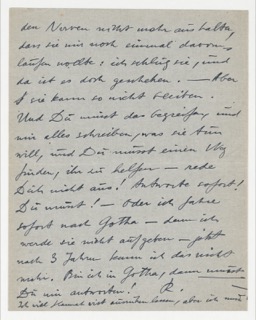 den Nerven nicht mehr aushalten,
dass sie mir noch einmal davon
laufen wollte: ich schlug sie, und
da ist es doch geschehen. — Aber
sie kann so nicht bleiben.
Und Du musst das begreifen, und
mir alles schreiben, was sie tun
will, und Du musst einen Weg
finden, ihr zu helfen – rede
Dich nicht aus! Antworte sofort!
Du musst! – Oder ich fahre
sofort nach Gotha – denn ich
werde sie nicht aufgeben – jetzt
nach 3 Jahren kann ich das nicht
mehr. Bin ich in Gotha, dann musst
Du mir antworten! R.
ich will aber ich muss